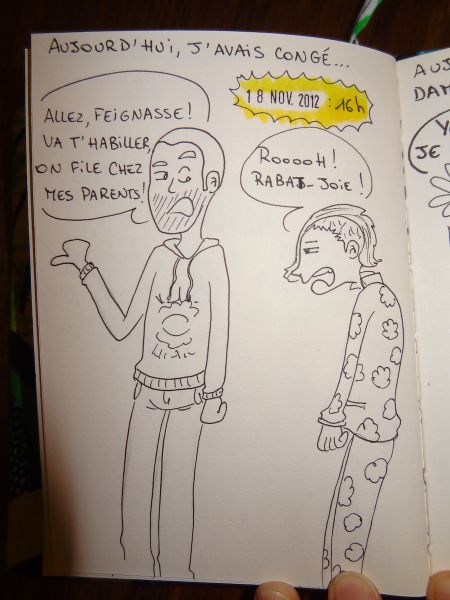 AUJOURD'HUI, J'AVAIS CONGÉ...
18 NOV. 2012 : 16h
ALLEZ, FEIGNASSE!
VA T'HABILLER,
ON FILE CHEZ
MES PARENTS!
ROOOOH!
RABAT-JOIE!
AUJ
DAM
JE